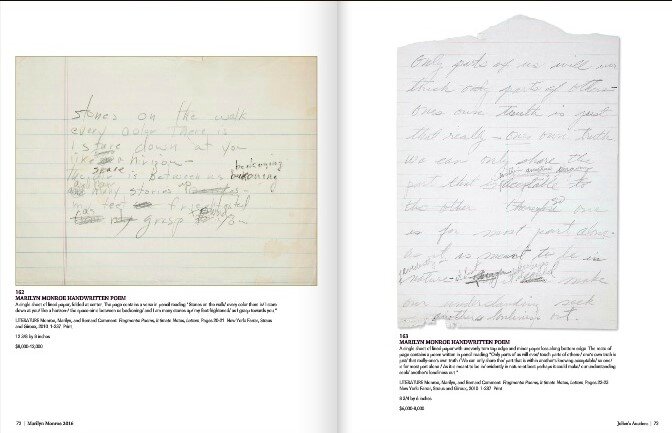 stones on the walk
every color there is
I stare down at you
like a horizon—
space
is between us beckoning
many stories up
my feet frightened
as my grasp you
162
MARILYN MONROE HANDWRITTEN POEM
A single sheet of lined paper, folded at center. The page contains a verse in pencil reading "Stones on the walk/ every color there is/ I stare
down at you/ like a horizon/ the space is between us beckoning/ and I am many stories up/ my feet frightened/ as I grasp towards you."
LITERATURE Monroe, Marilyn, and Bernard Comment. Fragments: Poems, Intimate Notes, Letters. Pages 20-21. New York: Farrar, Straus
and Giroux, 2010. 1-237. Print.
8 inches
$8,000-12,000
72 | Marilyn Monroe 2016
Only parts of us will ever
touch only parts of others—
ones own truth is just
that really — ones own truth
we can only share the
part that is acceptable to
the other one
is for most part alone
as it is meant to be in
nature— make
our understanding seek
another's loneliness out.
163
MARILYN MONROE HANDWRITTEN POEM
A single sheet of lined paper with unevenly torn top edge and minor paper loss along bottom edge. The recto of
page contains a poem written in pencil reading "Only parts of us will ever/ touch parts of others/ one's own truth is
just that really one's own truth/ We can only share the/ part that is within another's knowing acceptable/ so one/
is for most part alone / As it is meant to be in/ evidently in nature at best perhaps it could make/ our understanding
seek/ another's loneliness out."
LITERATURE Monroe, Marilyn, and Bernard Comment. Fragments: Poems, Intimate Notes, Letters. Pages 22-23
New York: Farrar, Straus and Giroux, 2010. 1-237. Print.
8 3/4 by 6 inches
$6,000-8,000
Julien's Auctions | 73